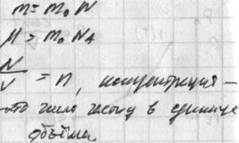 m = m₀ N
M = m₀ N_A
N/V = n, концентрация –
это число частиц в единице
объёма